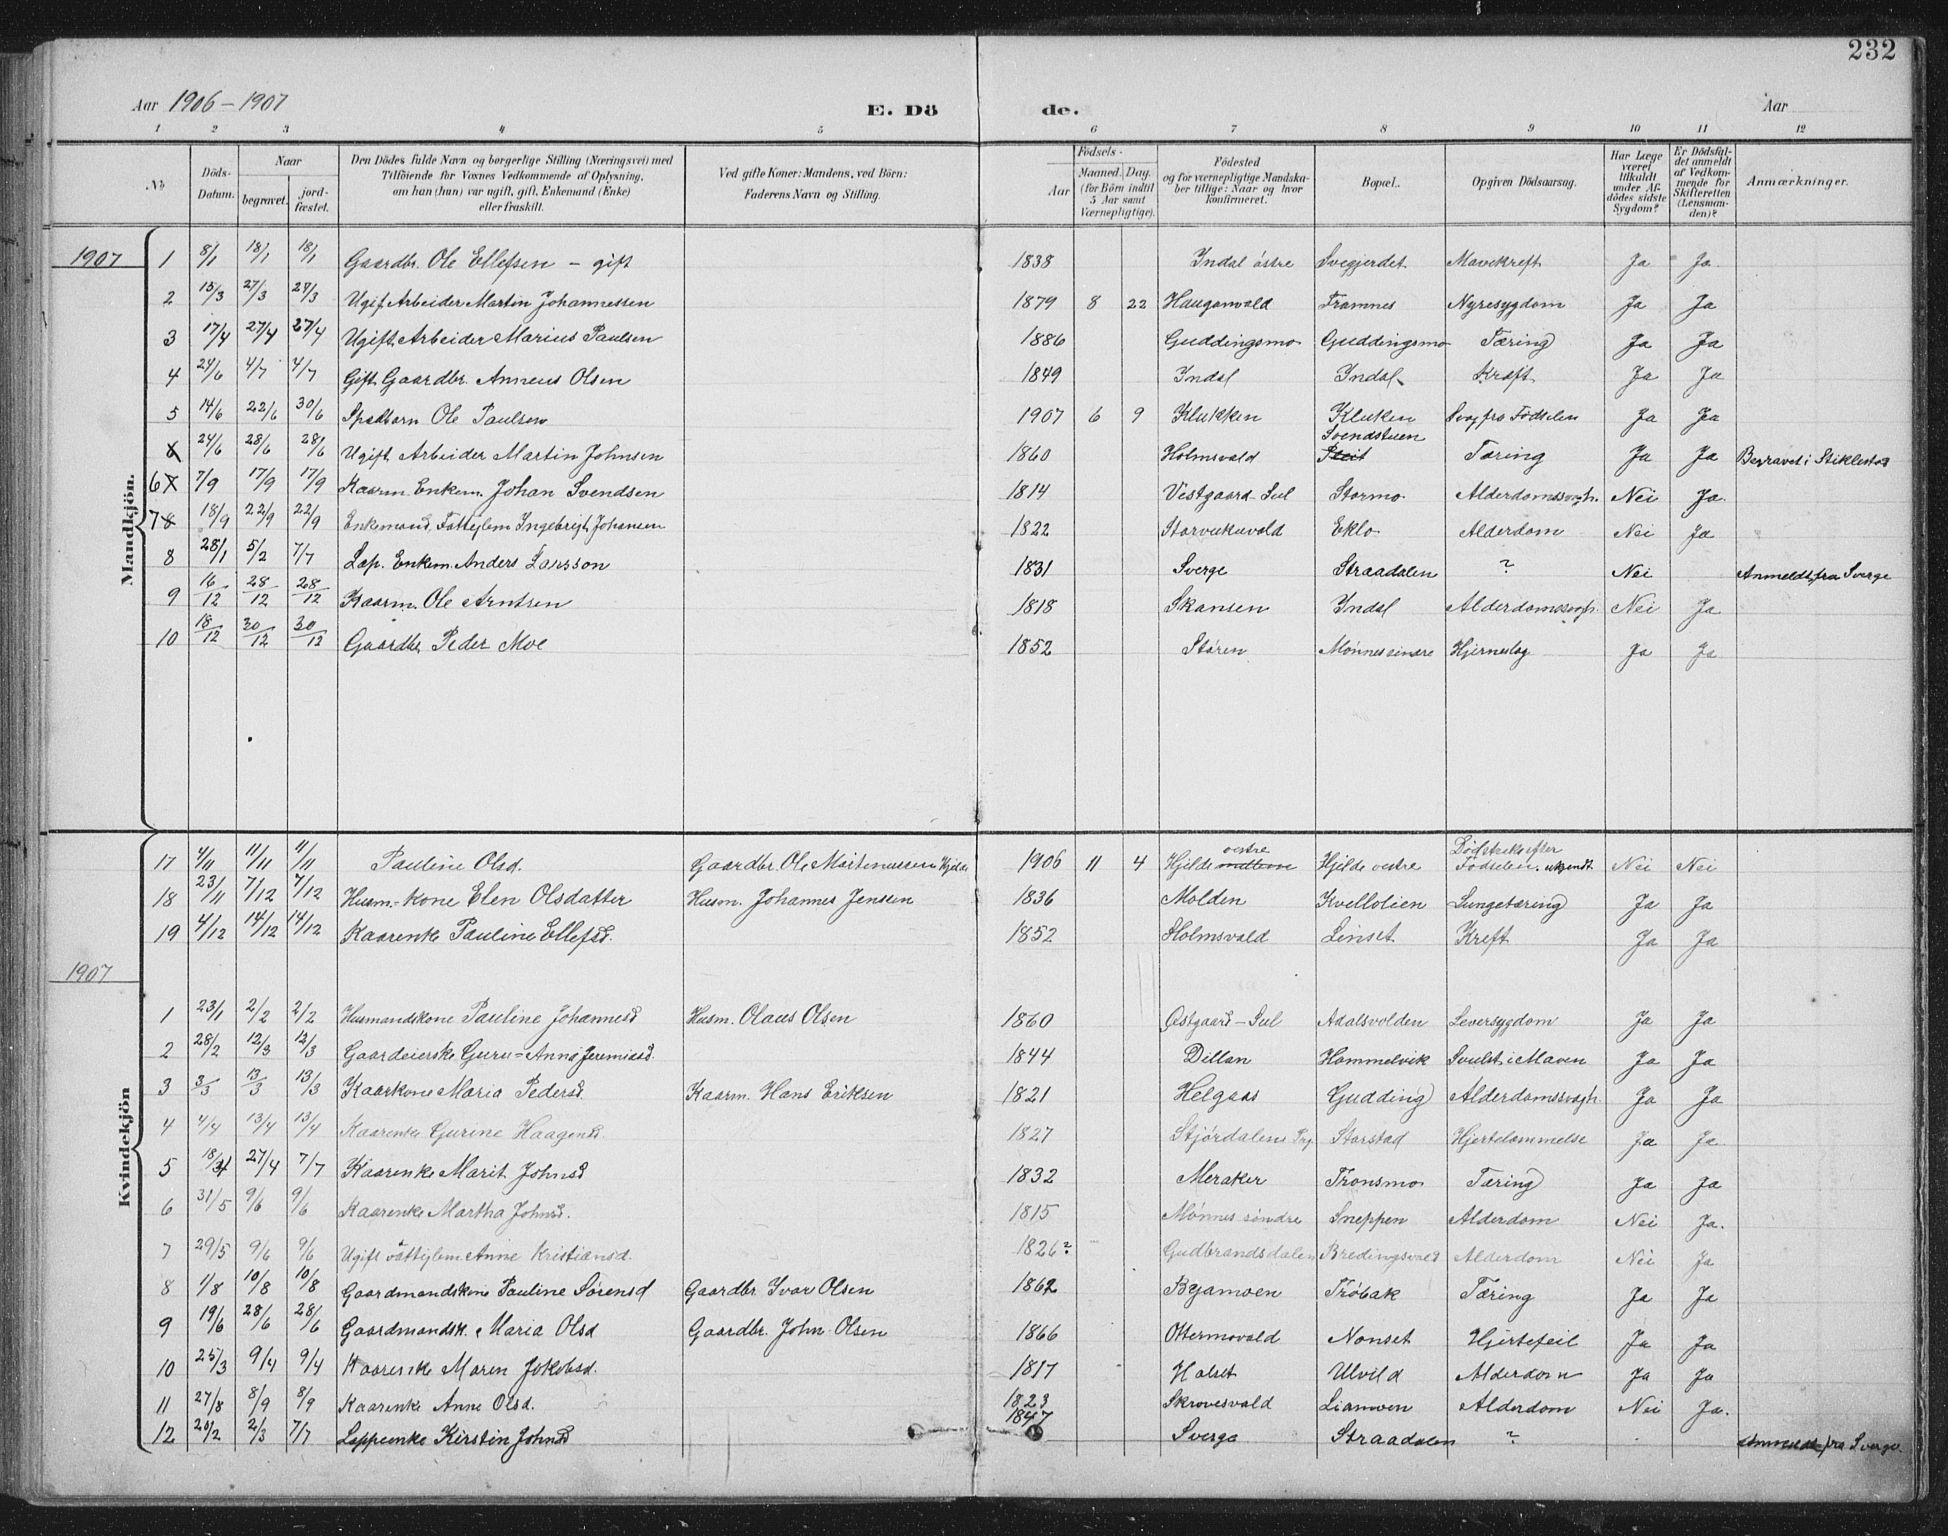 232
Aar 1906-1907 E. Dö de. Aar
1 2 3 4 5 6 7 8 9 10 11 12
No
Döds-Datum.
Naar begravet. jordfæstet.
Den Dödes fulde Navn og borgerlige Stilling (Næringsvei) med Tilföiende for Voxnes Vedkommende af Oplysning, om han (hun) var ugift, gift, Enkemand (Enke) eller fraskilt.
Ved gifte Koner: Mandens, ved Börn: Faderens Navn og Stilling.
Födsels-
Aar Maaned. Dag. (for Börn indtil 5 Aar samt Værnepligtige).
Födested og for værnepligtige Mandskaber tillige: Naar og hvor konfirmeret.
Bopæl.
Opgiven Dödsaarsag.
Har Læge været tilkaldt under Afdödes sidste Sygdom?
Er Dödsfaldet anmeldt af Vedkommende for Skifteretten (Lensmanden)?
Anmærkninger.
Mandkjön.
1907 1 8/1 18/1 18/1 Gaardbr. Ole Ellefsen - gift 1838 Indal östre Svegjerdet Mavekreft Ja Ja
2 15/3 27/3 29/3 Ugift Arbeider Martin Johannessen 1879 8 22 Hauganvald Framnes Nyresygdom Ja Ja
3 17/4 27/4 27/4 Ugift Arbeider Marius Paulsen 1886 Guddingsmo Guddingsmo Tæring Ja Ja
4 24/6 4/7 4/7 Gift Gaardbr. Anneus Olsen 1849 Indal Indal Kræft Ja Ja
5 14/6 22/6 30/6 Spædbarn Ole Paulsen 1907 6 9 Klukken Kluken Svag fra Födselen Ja Ja
24/6 28/6 28/6 Ugift Arbeider Martin Johnsen 1860 Holmsvald Svendstuen Tæring Ja Ja Begravet i Stiklestad
6 7/9 17/9 17/9 Kaarm. Enkem. Johan Svendsen 1814 Vestgaard-Sul Stormo Alderdomssvagh. Nei Ja
7 8 18/9 22/9 22/9 Enkemand, Fattiglem Ingebrigt Johansen 1822 Storvukuvald Eklo Alderdom Nei Ja
8 28/1 5/2 7/7 Lap. Enkem. Anders Larsson 1831 Sverge Straadalen ? Nei Anmeldt fra Sverge
9 16/12 28/12 28/12 Kaarm. Ole Arntsen 1818 Skansen Indal Alderdomssvagh. Nei Ja
10 18/12 30/12 30/12 Gaardbr. Peder Moe 1852 Støren Mønnes søndre Hjerneslag Ja Ja
Kvindekjön
17 4/11 11/11 11/11 Pauline Olsd. Gaardbr. Ole Martenussen Hjelde 1906 11 4 Hjelde mellem vestre Hjelde vestre Død straks efter Fødselen. ukjendt Nei Nei
18 23/11 7/12 7/12 Husm.-kone Elen Olsdatter Husm. Johannes Jenssen 1836 Molden Kvellolien Lungetæring Ja Ja
19 4/12 14/12 14/12 Kaarenke Pauline Ellefsd. 1852 Holmsvald Linset Kreft Ja Ja
1907
1 23/1 2/2 2/2 Husmandskone Pauline Johannesd Husm. Olaus Olsen 1860 Østgaard-Sul Adalsvolden Leversygdom Ja Ja
2 28/2 12/3 12/3 Gaardeierske Guru-Anna Jeremiasd. 1844 Dillan Hammelvik Svulst i Maven Ja Ja
3 3/3 13/3 13/3 Kaarkone Maria Pedersd. Kaarm. Hans Eriksen 1821 Helgaas Gudding Alderdomssvagh. Ja Ja
4 4/4 13/4 13/4 Kaarenke Gurine Haagensd. 1827 Stjördalens Prg Storstad Hjertelammelse Ja Ja
5 18/4 27/4 7/7 Kaarenke Marit Johnsd 1832 Meraker Tronsmo Tæring Ja Ja
6 31/5 9/6 9/6 Kaarenke Martha Johnsd. 1815 Mønnes søndre Sneppen Alderdom Nei Ja.
7 29/5 9/6 9/6 Ugift Fattiglem Anne Kristiansd. 1826? Gudbrandsdalen Bredingsvald Alderdom Nei Ja
8 1/8 10/8 10/8 Gaardmandskone Pauline Sørensd Gaardbr. Ivar Olsen 1862 Byamoen Trøbak Tæring Ja Ja
9 19/6 28/6 28/6 Gaardmandsk. Maria Olsd Gaardbr. John Olsen 1866 Ottermovald Nonset Hjertefeil Ja Ja
10 25/3 9/4 9/4 Kaarenke Maren Jakobsd. 1817 Halset Ulvild Alderdom Ja Ja
11 27/8 8/9 8/9 Kaarenke Anne Olsd. 1823 Skrovesvald Liamoen Alderdom Nei Ja.
12 20/2 2/3 7/7 Lappeenke Kirstin Johnsd 1847 Sverge Straadalen ? Anmeldt fra Sverge.